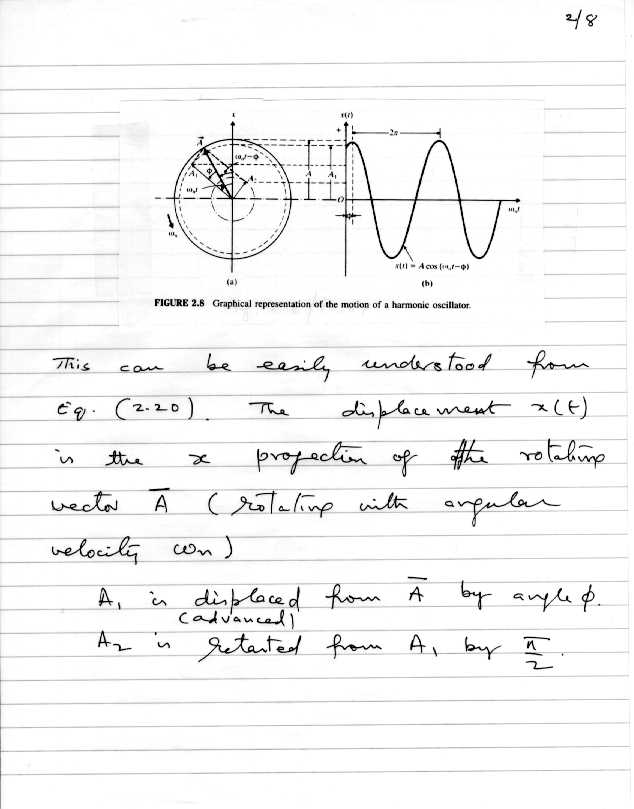 2/8
x
x(t)
+
2π
A
ωnt−Φ
A1
Φ
A2
ωnt
A
A1
O
ωn
ωnt
x(t) = A cos (ωnt−Φ)
(a)
(b)
FIGURE 2.8 Graphical representation of the motion of a harmonic oscillator.
This can be easily understood from
Eq. (2.20). The displacement x(t)
is the x projection of the rotating
vector A̅ (rotating with angular
velocity ωn)
A1 is displaced from A̅ by angle ϕ.
(advanced)
A2 is retarted from A1 by π/2.